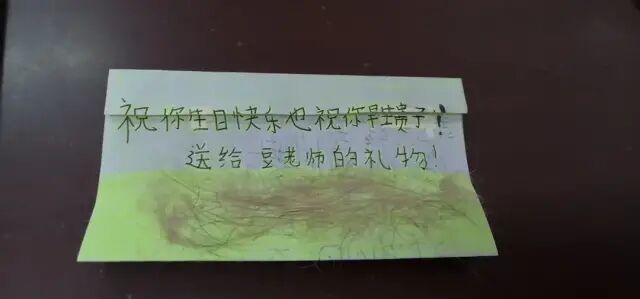 祝你生日快乐也祝你早生贵子!
送给豆老师的礼物!